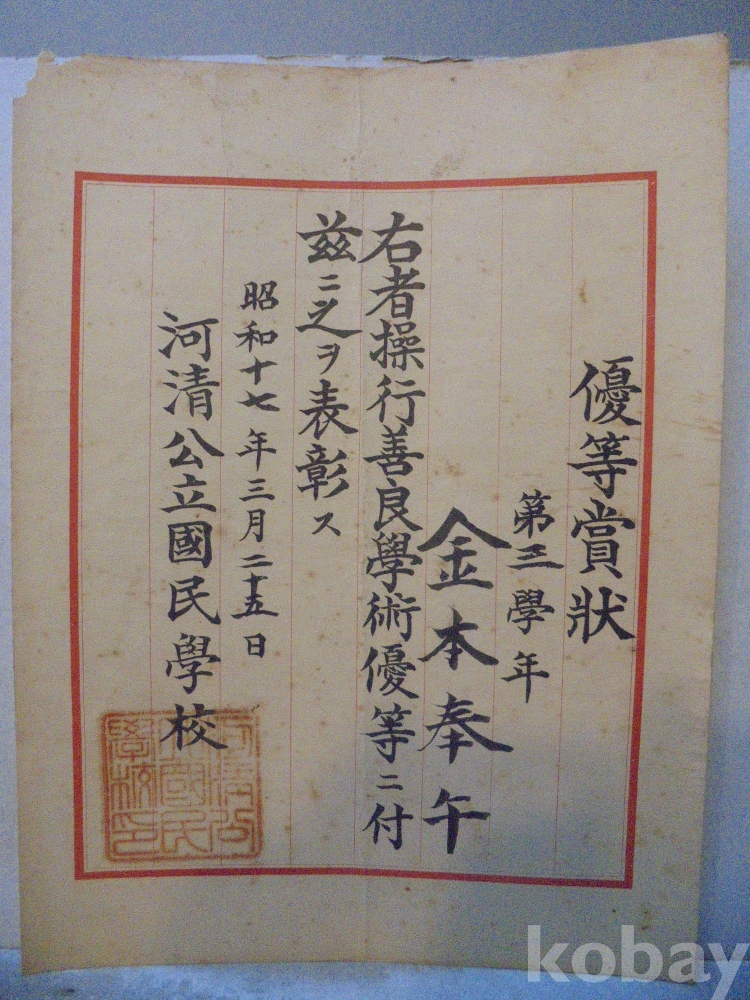 優等賞狀
第三學年
金本奉午
右者操行善良學術優等ニ付
茲ニ之ヲ表彰ス
昭和十七年三月二十五日
河清公立國民學校
河清公
立國民
學校印
kobay